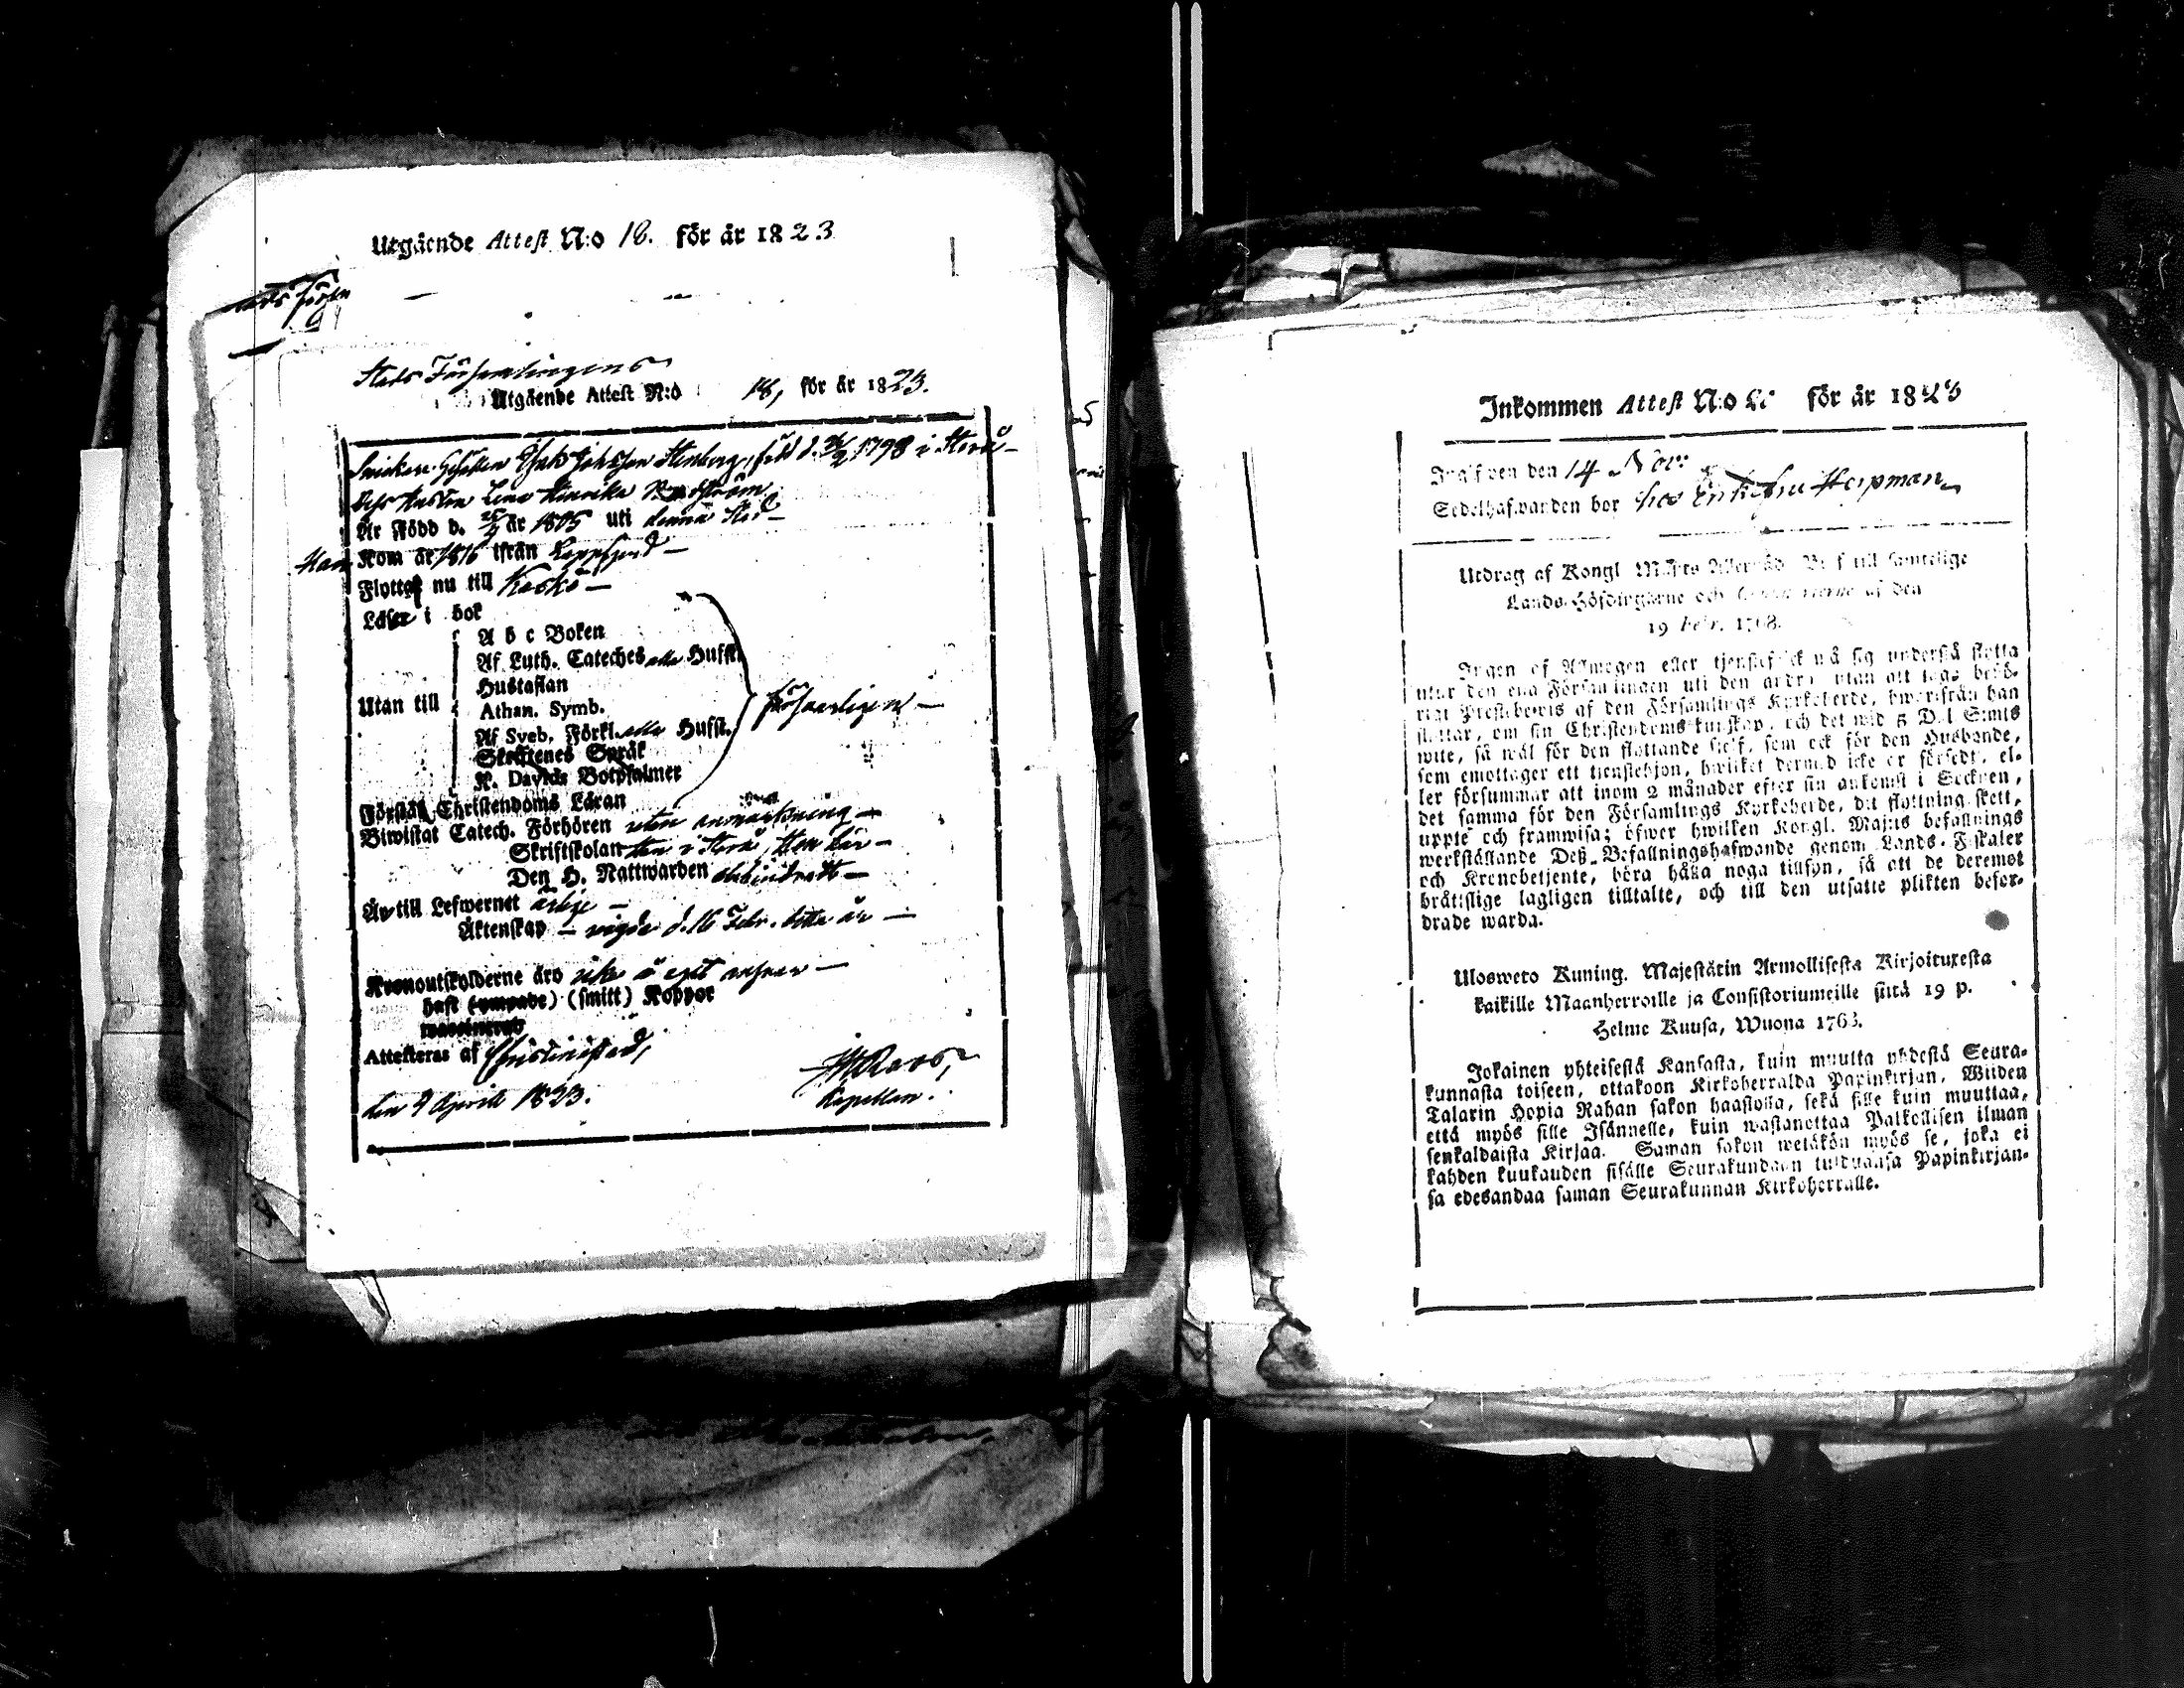 Utgående Attest N:o 18. för år 1823
Stads Församlingens
Utgående Attest N:o 18, för år 1823.
Snickare Gesällen Johansson Stenberg, född d. 1798 i Storå
Dess Hustru Lena Henrika
Är Född d. 25/9 år 1805 uti denna Stad
Han Kom år 1816 ifrån Lappfjerd
Flyttar nu till Kaskö
Läser i bok
A b c Boken
Af Luth. Cateches alla Hufst.
Hustaflan
Utan till
Athan. Symb.
försvarligen
Af Sveb. Förkl. alla Hufst.
Skriftenes Språk
K. Davids Botpsalmer
Förstår Christendoms Läran
Biwistat Catech. Förhören utan anmärkning
Skriftskolan han i Storå, Hon här
Den H. Nattwarden obehindradt
Är till Lefwernet ärlige
Äktenskap wigde d. 16 Febr. detta år
Kronoutskylderne äro
haft (ympade) (smitt) Koppor
Attesteras af Christinestad,
den 9 Aprill 1823.
Kapellan.
Inkommen Attest N:o för år 1823
Ingifven den 14 Nov:
Sedelhafwanden bor hos Enkefru
Utdrag af Kongl Maj:ts Allernåd. Bref till samtelige
Lands-Höfdingarne och Consistorierne af den
19 Febr. 1768.
Ingen af Allmogen eller tjenstefolck må sig understå flytta
utur den ena Församlingen uti den andra utan att taga behö-
rigt Prestebewis af den Församlings Kyrkoherde, hwarifrån han
flyttar, om sin Christendoms kunskap, och det wid 5 Dal. S:mts
wite, så wäl för den flyttande sielf, som ock för den Husbonde,
som emottager ett tienstehjon, hwilket dermed icke är försedt, el-
ler försummar att inom 2 månader efter sin ankomst i Socknen,
det samma för den Församlings Kyrkoherde, dit flyttning skett,
uppte och framwisa; öfwer hwilken Kongl. Maj:ts befallnings
werkställande Deß Befallningshafwande genom Lands-Fiskaler
och Kronobetjente, böra hålla noga tillsyn, så att de deremot
bråtslige lagligen tilltalte, och till den utsatte plikten befor-
drade warda.
Ulosweto Kuning. Majestätin Armollisesta Kirjoituxesta
kaikille Maanherroille ja Consistoriumeille siitä 19 p.
Helme Kuusa, Wuona 1768.
Jokainen yhteisestä Kansasta, kuin muutta yhdestä Seura-
kunnasta toiseen, ottakoon Kirkoherralda Papinkirjan, Wiiden
Talarin Hopia Rahan sakon haastolla, sekä sille kuin muuttaa,
että myös sille Isännelle, kuin wastanottaa Palkollisen ilman
senkaldaista Kirjaa. Saman sakon wetäkön myös se, joka ei
kahden kuukauden sisälle Seurakundaan tulduansa Papinkirjan-
sa edesandaa saman Seurakunnan Kirkoherralle.